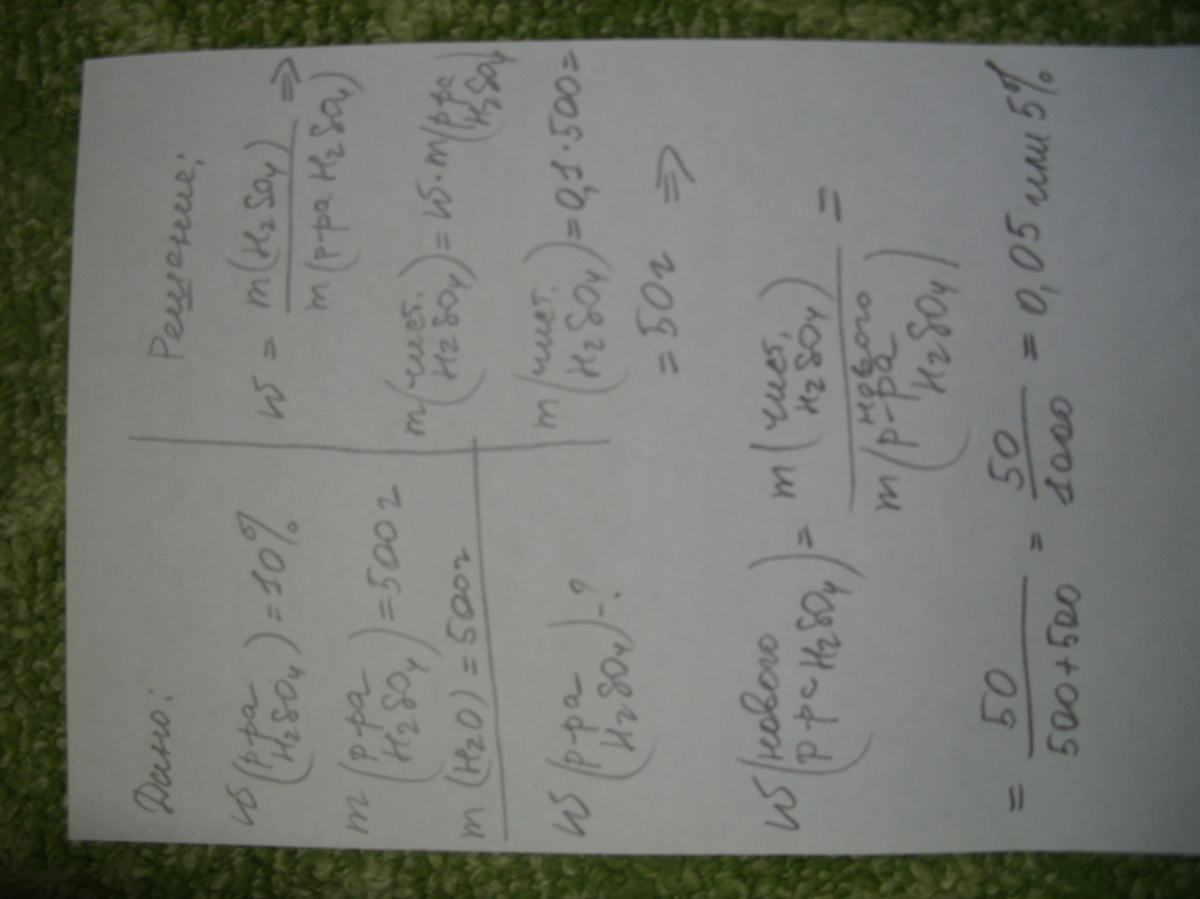 Дано:
W(р-ра H₂SO₄) = 10%
m(р-ра H₂SO₄) = 500 г
m(H₂O) = 500г
W(р-ра H₂SO₄) - ?
Решение:
W = m(H₂SO₄) / m(р-ра H₂SO₄) ⇒
m(чист. H₂SO₄) = W · m(р-ра H₂SO₄)
m(чист. H₂SO₄) = 0,1 · 500 =
= 50 г ⇒
W(нового р-ра H₂SO₄) = m(чист. H₂SO₄) / m(нового р-ра H₂SO₄) =
= 50 / 500+500 = 50 / 1000 = 0,05 или 5%